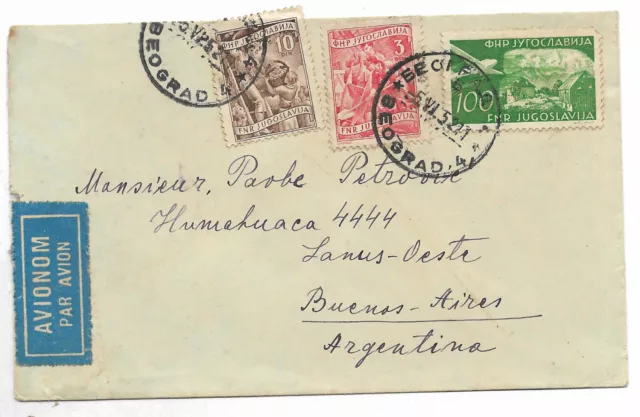 ФНР ЈУГОСЛАВИЈА
10
DIN
FNR JUGOSLAVIJA
ФНР ЈУГОСЛАВИЈА
3
FNR JUGOSLAVIJA
ФНР ЈУГОСЛАВИЈА
100
FNR JUGOSLAVIJA
BEOGRAD 4
BEOGRAD, 4
Monsieur, Pavbe Petrovix
Humahuaca 4444
Lanus-Oeste
Buenos-Aires
Argentina
AVIONOM
PAR AVION